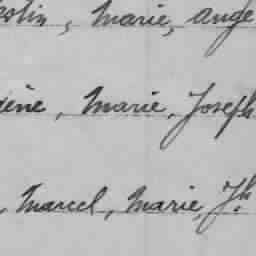 estin, Marie, Ange
gène, Marie, Joseph
, Marcel, Marie, Jh